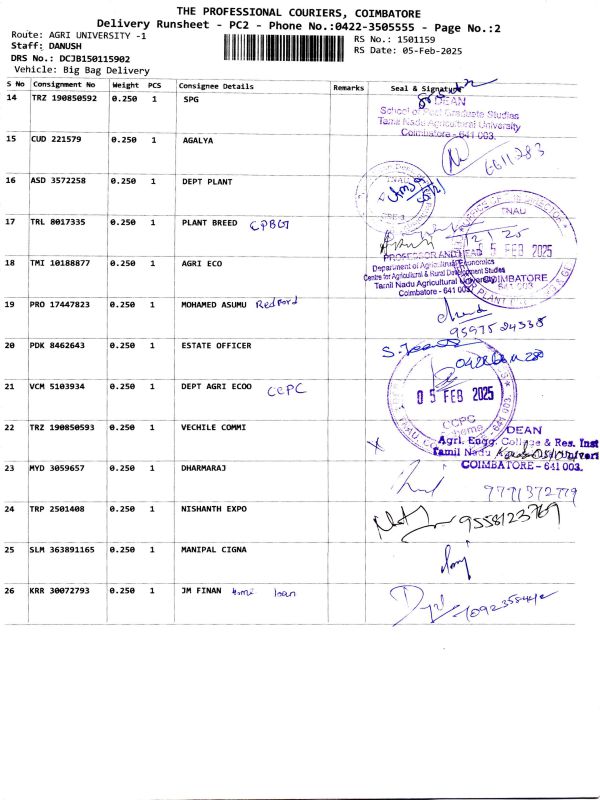 THE PROFESSIONAL COURIERS, COIMBATORE
Delivery Runsheet - PC2 - Phone No.:0422-3505555 - Page No.:2
Route: AGRI UNIVERSITY -1
RS No.: 1501159
Staff: DANUSH
RS Date: 05-Feb-2025
DRS No.: DCJB150115902
Vehicle: Big Bag Delivery
S No Consignment No Weight PCS Consignee Details Remarks Seal & Signature
14 TRZ 190850592 0.250 1 SPG
DEAN
School of Post Graduate Studies
Tamil Nadu Agricultural University
Coimbatore - 641 003.
15 CUD 221579 0.250 1 AGALYA
6611283
16 ASD 3572258 0.250 1 DEPT PLANT
TNAU
17 TRL 8017335 0.250 1 PLANT BREED CPBGT
TNAU
05 FEB 2025
PROFESSOR AND HEAD
18 TMI 10188877 0.250 1 AGRI ECO
Department of Agricultural Economics
Centre for Agricultural & Rural Development Studies
Tamil Nadu Agricultural University
Coimbatore - 641 003
COIMBATORE
641 003
19 PRO 17447823 0.250 1 MOHAMED ASUMU Redford
9597524338
20 PDK 8462643 0.250 1 ESTATE OFFICER
21 VCM 5103934 0.250 1 DEPT AGRI ECOO CCPC
05 FEB 2025
CCPC
Scheme
22 TRZ 190850593 0.250 1 VECHILE COMMI
DEAN
Agrl. Engg. College & Res. Inst
Tamil Nadu
COIMBATORE - 641 003.
23 MYD 3059657 0.250 1 DHARMARAJ
9771372779
24 TRP 2501408 0.250 1 NISHANTH EXPO
9558123769
25 SLM 363891165 0.250 1 MANIPAL CIGNA
26 KRR 30072793 0.250 1 JM FINAN Home loan